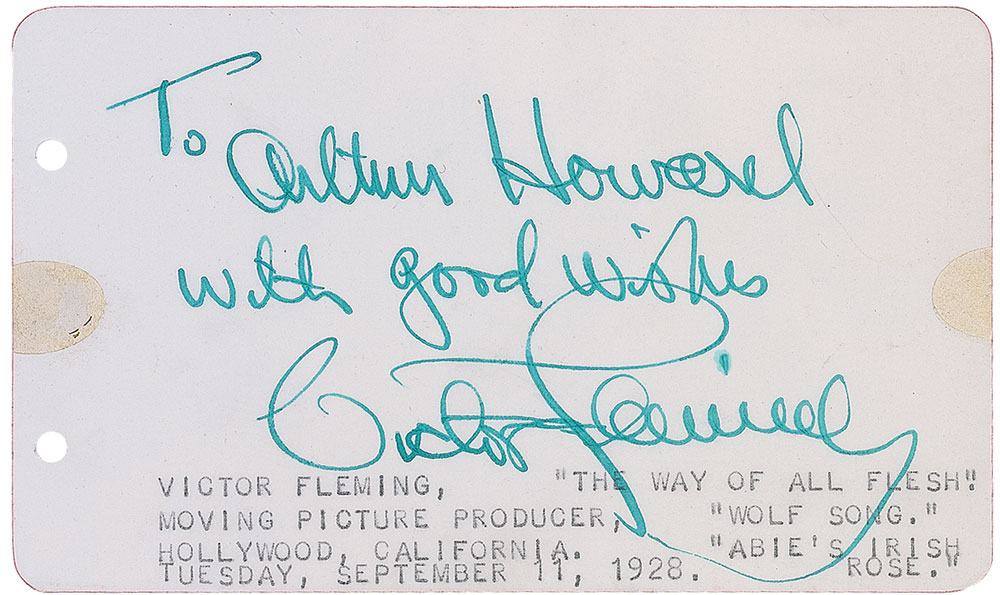 To
Arthur Howard
with good wishes
Victor Fleming
VICTOR FLEMING, "THE WAY OF ALL FLESH"
MOVING PICTURE PRODUCER, "WOLF SONG."
HOLLYWOOD, CALIFORNIA. "ABIE'S IRISH
TUESDAY, SEPTEMBER 11, 1928. ROSE."